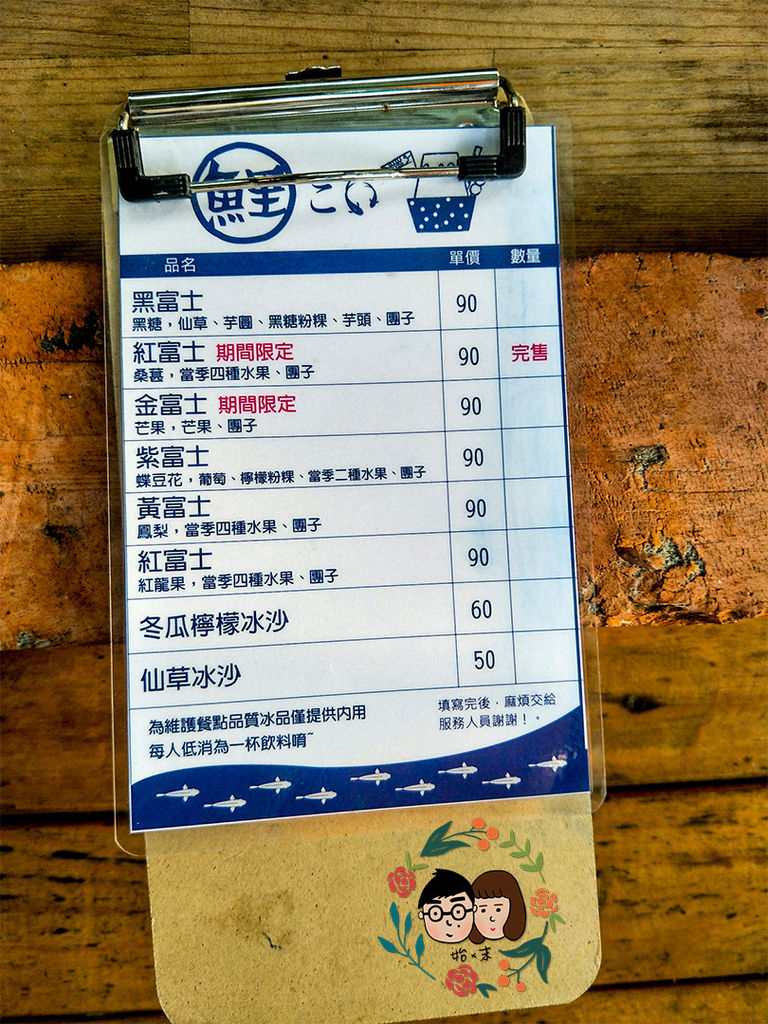 鯉 こい
品名 單價 數量
黑富士 90
黑糖，仙草、芋圓、黑糖粉粿、芋頭、團子
紅富士 期間限定 90 完售
桑葚，當季四種水果、團子
金富士 期間限定 90
芒果，芒果、團子
紫富士 90
蝶豆花，葡萄、檸檬粉粿、當季二種水果、團子
黃富士 90
鳳梨，當季四種水果、團子
紅富士 90
紅龍果，當季四種水果、團子
冬瓜檸檬冰沙 60
仙草冰沙 50
為維護餐點品質冰品僅提供內用
每人低消為一杯飲料唷~
填寫完後，麻煩交給
服務人員謝謝！。
始×末